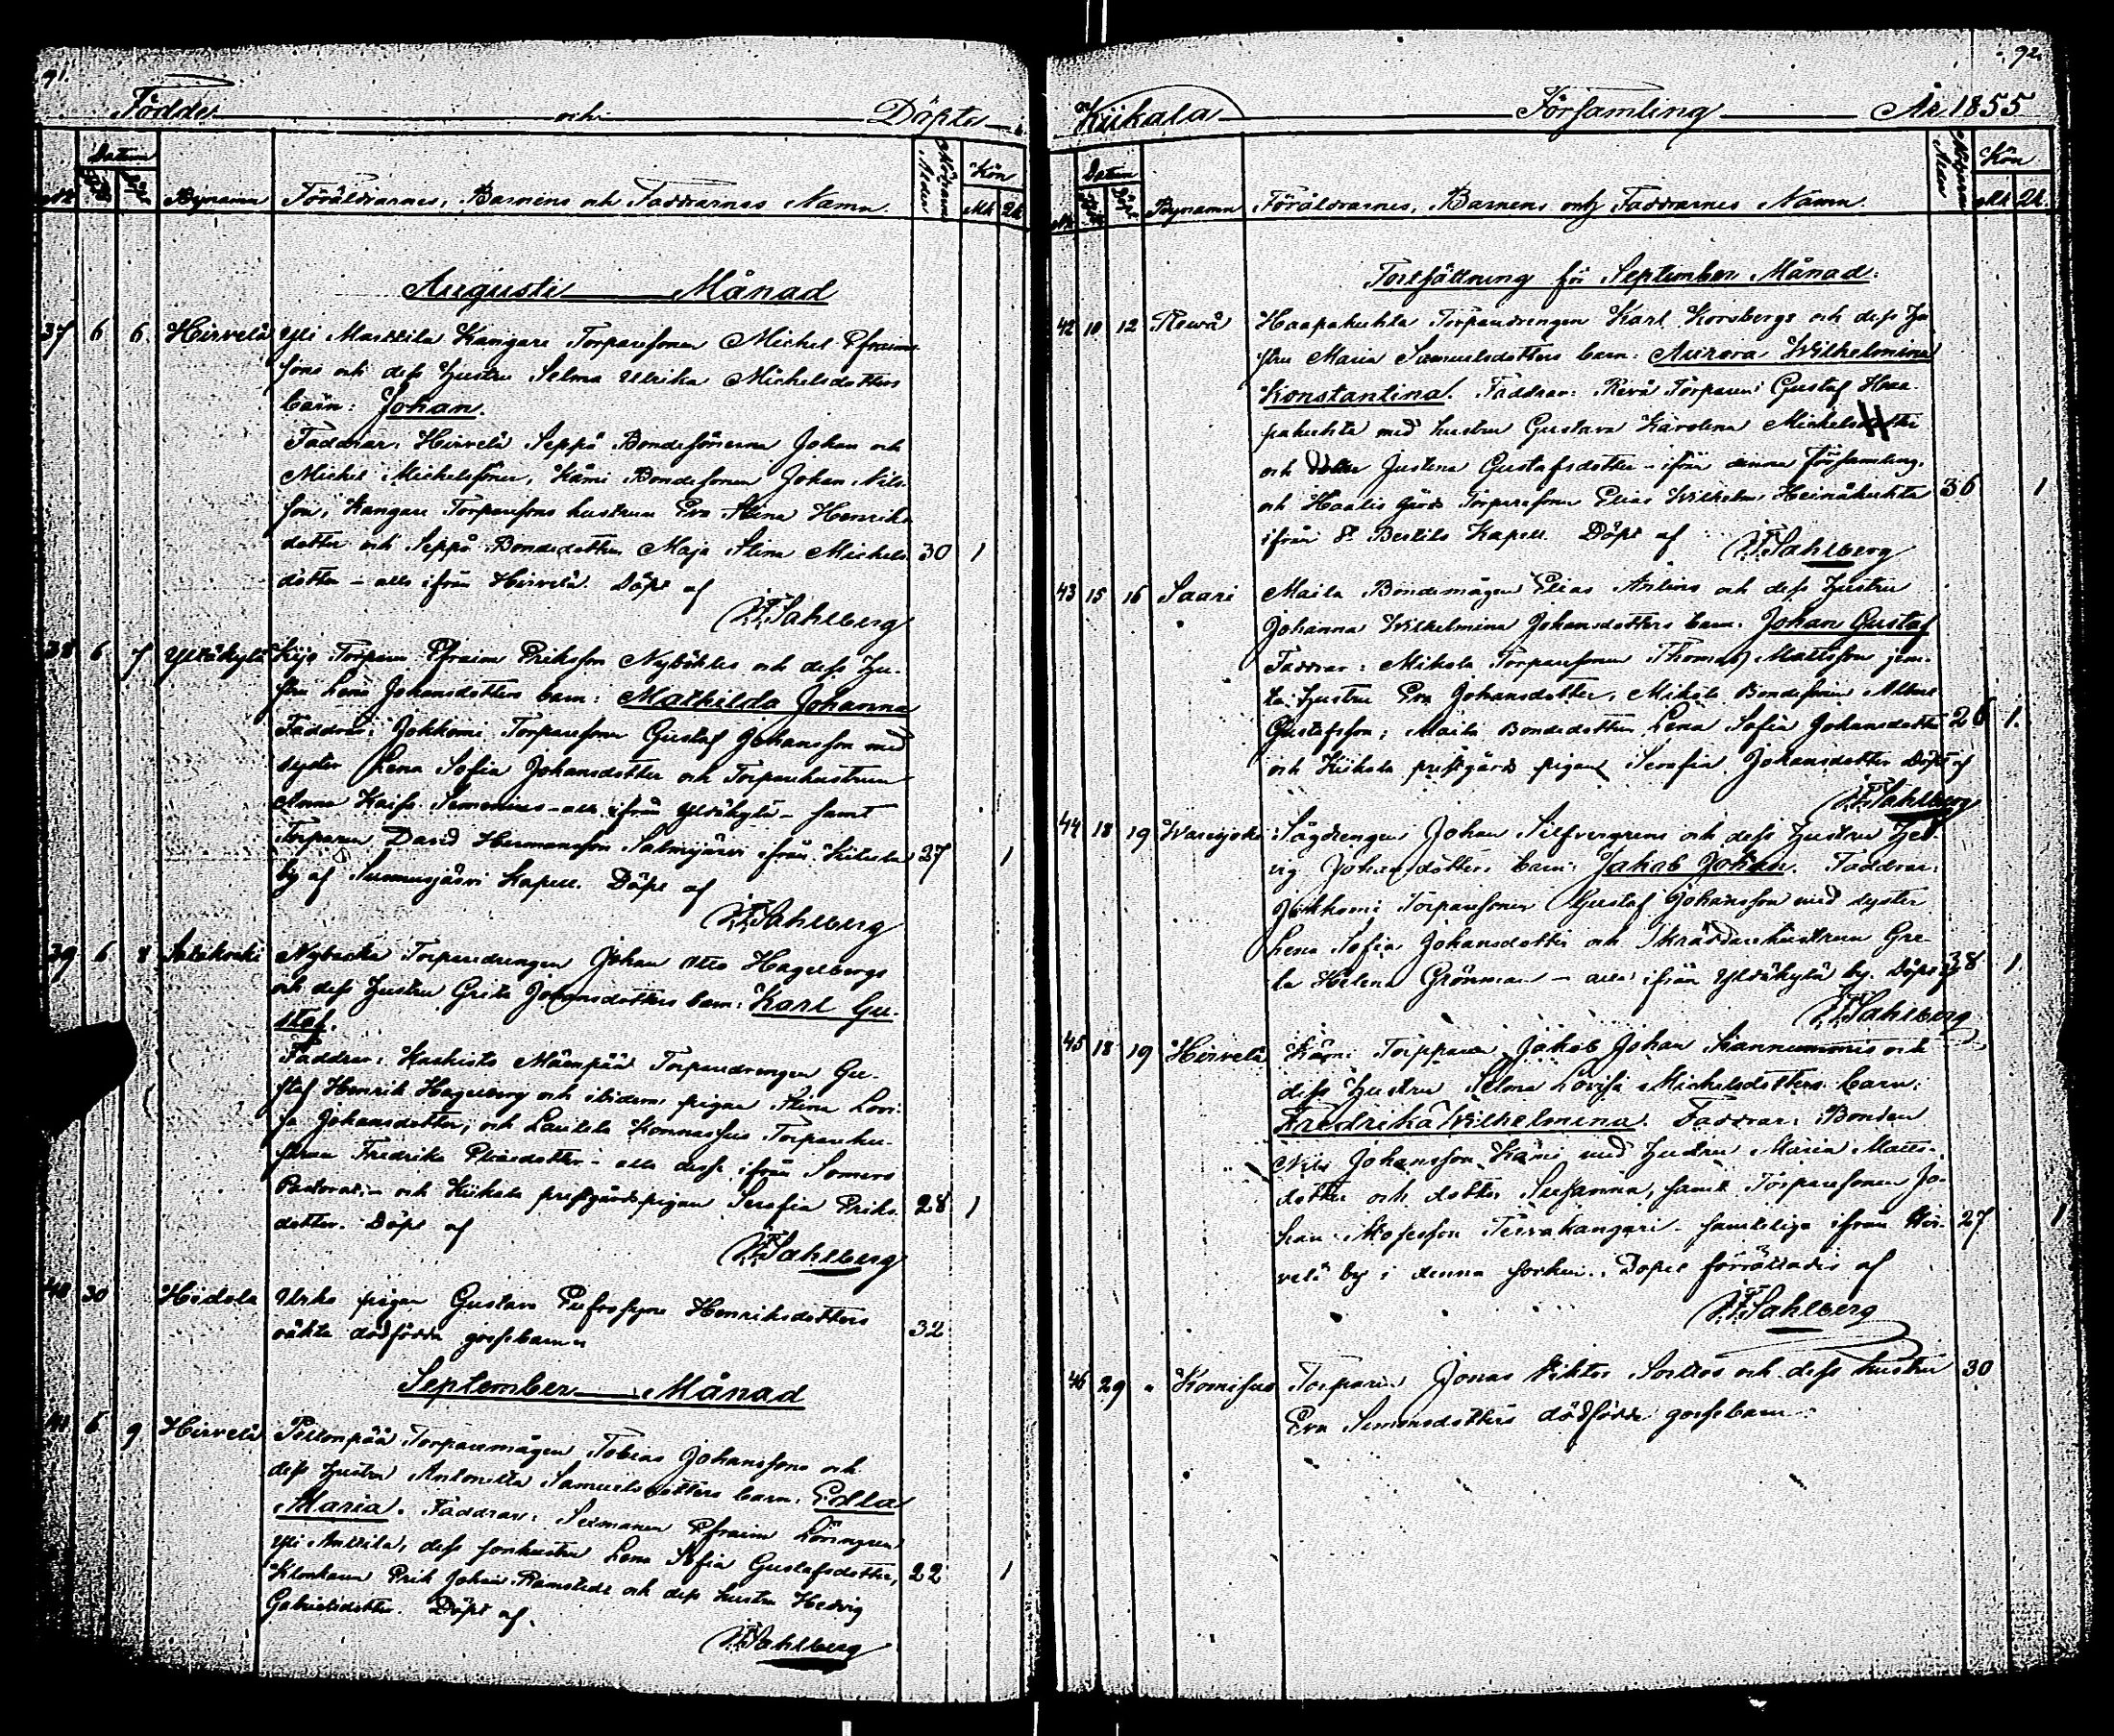 91.
Födde och Döpte
Datum
Bynamn Föräldrarnes, Barnens och Faddrarnes Namn. Modrens Ålder Kön
Mk Qk
Augusti Månad
37 6 6. Hirvelä Yli Marttila Kangare Torparesonen Michel Efraims-
sons och dess hustru Selma Ulrika Michelsdotters
barn: Johan.
Faddrar: Hirvelä Seppä Bondesönerna Johan och
Michel Michelssöner, Kämi Bondesonen Johan Nils-
son, Kangare Torparesons hustrun Eva Stina Henriks-
dotter och Seppä Bondedottren Maja Stina Michels- 30 1
dotter - alla ifrån Hirvelä. Döpt af
Sahlberg
38 6 7 Yltäkylä Torparen Efraim Eriksson och dess hu-
stru Lena Johansdotters barn: Mathilda Johanna
Faddrar: Jokkomi Torparesonen Gustaf Johansson med
syster Lena Sofia Johansdotter och Torparehustrun
Anna Kaisa - alla ifrån Yltäkylä - samt
Torparen David Hermansson Salmijärvi ifrån Kitula 27 1
by af Suomusjärvi Kapell. Döpt af
Sahlberg
39 6 8 Nybacka Torparedrengen Johan Otto Hagelbergs
och dess hustru Greta Johansdotters barn: Karl Gu-
staf.
Faddrar: Mäenpää Torparedrengen Gu-
staf Henrik Hagelberg och ibidem pigan Stina Lovi-
sa Johansdotter, och Torparehu-
strun Fredrika Eliaedotter - alla desse ifrån Somero
Pastorat - och Kiikala prestgårdspigan Serafia Eriks- 28 1
dotter. Döpt af
Sahlberg
40 30 Hidola pigan Gustava Eufrosyne Henriksdotters
oäkta dödfödda gossebarn 32
September Månad
41 6 9 Hirvelä Peltonpää Torparemågen Tobias Johanssons och
dess hustru Antonetta Samuelsdotters barn: Edla
Maria. Faddrar: Sexmannen Efraim Lövingren
Yli Anttila, dess sonhustru Lena Sofia Gustafsdotter, 22 1
Klockaren Erik Johan Ramstedt och dess hustru Hedvig
Gabrielsdotter. Döpt af.
Sahlberg
92.
Kiikala Församling År 1855
Datum
Byname Föräldrarnes, Barnens och Faddrarnes Namn. Modrens Ålder Kön
Mk Qk.
Fortsättning för September Månad.
42 10 12 Rewä Haapakukta Torparedrengen Karl Korsbergs och dess hu-
stru Maria Samuelsdotters barn: Aurora Wilhelmina
Konstantina. Faddrar: Revä Torparen Gustaf Haa-
pakukta med hustru Gustava Karolina Michelsdotter
och dotter Justina Gustafsdotter - ifrån denna församling.
och Haalis gårds Torparesonen Elias Wilhelm 36 1
ifrån St Bertils Kapell. Döpt af
Sahlberg
43 15 16 Saari Maila Bondemågen Elias Arlins och dess hustru
Johanna Wilhelmina Johansdotters barn. Johan Gustaf
Faddrar: Mikola Torparesonen Thomas Mattsson jem-
te hustru Eva Johansdotter, Mikola Bondesonen Albert
Gustafsson; Maila Bondedottren Lena Sofia Johansdotter 26 1.
och Kiikala prestgårds pigan Serafia Johansdotter Döpt af
Sahlberg
44 18 19 Warisjoki Sågdrengen Johan Silfvergrens och dess hustru Hed-
vig Johansdotters barn: Jakob Johan. Faddrar:
Jokkomi Torparesonen Gustaf Johansson med syster
Lena Sofia Johansdotter och Skräddarehustrun Gre-
ta Helena Grönman - alla ifrån Yltäkylä by. Döpt af 38 1.
Sahlberg
45 18 19 Hirvelä Kämi Torparen Jakob Johan och
dess hustru Selma Lovisa Michelsdotters barn:
Fredrika Wilhelmina. Faddrar: Bonden
Nils Johansson Kämi med hustru Maria Matts-
dotter och dotter Susanna, samt Torparesonen Jo-
han Mosesson Tervakangari - samtelige ifrån Hir- 27 1
velä by i denna socken. Dopet förrättadis af
Sahlberg
46 29 Komisuo Torparen Jonas Viktor och dess hustru 30
Eva Simonsdotters dödfödde gossebarn